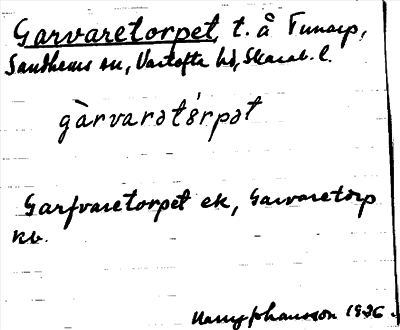 Garvaretorpet, t. å Tunarp,
Sandhems sn, Vartofta hd, Skarab. l.
gàrvarətórpət
Garfvaretorpet ek, Garvaretorp
kb.
Harry Johansson 1936.